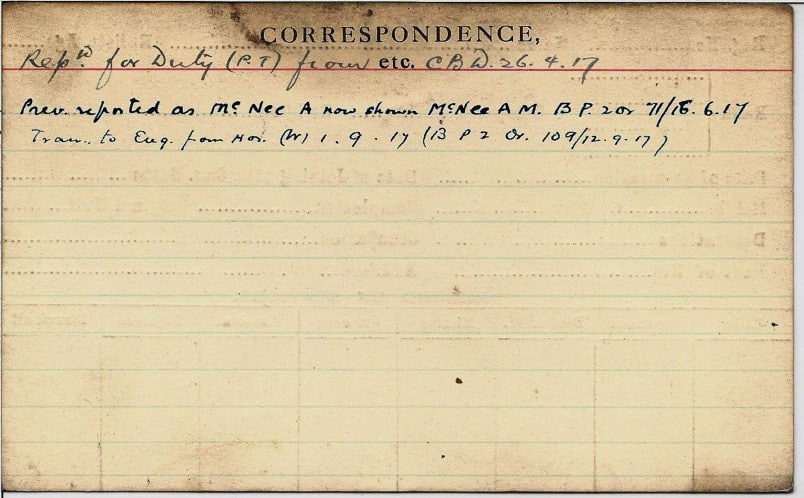 CORRESPONDENCE,
Repᵈ for Duty (P.T) from etc. C B D. 26. 4. 17
Prev. reported as McNee A now shown McNee A M. B P. 2 or 71/16.6.17
Tran. to Eng. from Hor. (W) 1. 9. 17 (B P 2 Or. 109/12.9.17)